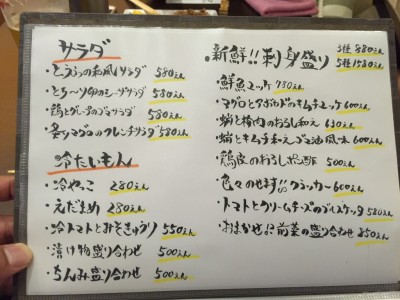 サラダ
・とうふの和風サラダ 580えん
・とろ〜り卵のシーザーサラダ 580えん
・鶏とグレープのゴマサラダ 580えん
・炙りマグロのフレンチサラダ 580えん
冷たいもん
・冷やっこ 280えん
・えだまめ 280えん
・冷トマトとみそきゅうり 550えん
・漬け物盛り合わせ 500えん
・ちんみ盛り合わせ 500えん
・新鮮!!刺身盛り 3種 880えん
5種 1580えん
・鮮魚ユッケ 730えん
・マグロとアボカドのキムチユッケ 600えん
・蛸と梅肉のおろし和え 630えん
・蛸とキムチ和えゴマ油風味 600えん
・鶏皮のおろしポン酢 500えん
・色々のせます!!クラッカー 600えん
・トマトとクリームチーズのブルスケッタ 580えん
・おまかせ!!前菜の盛り合わせ 850えん